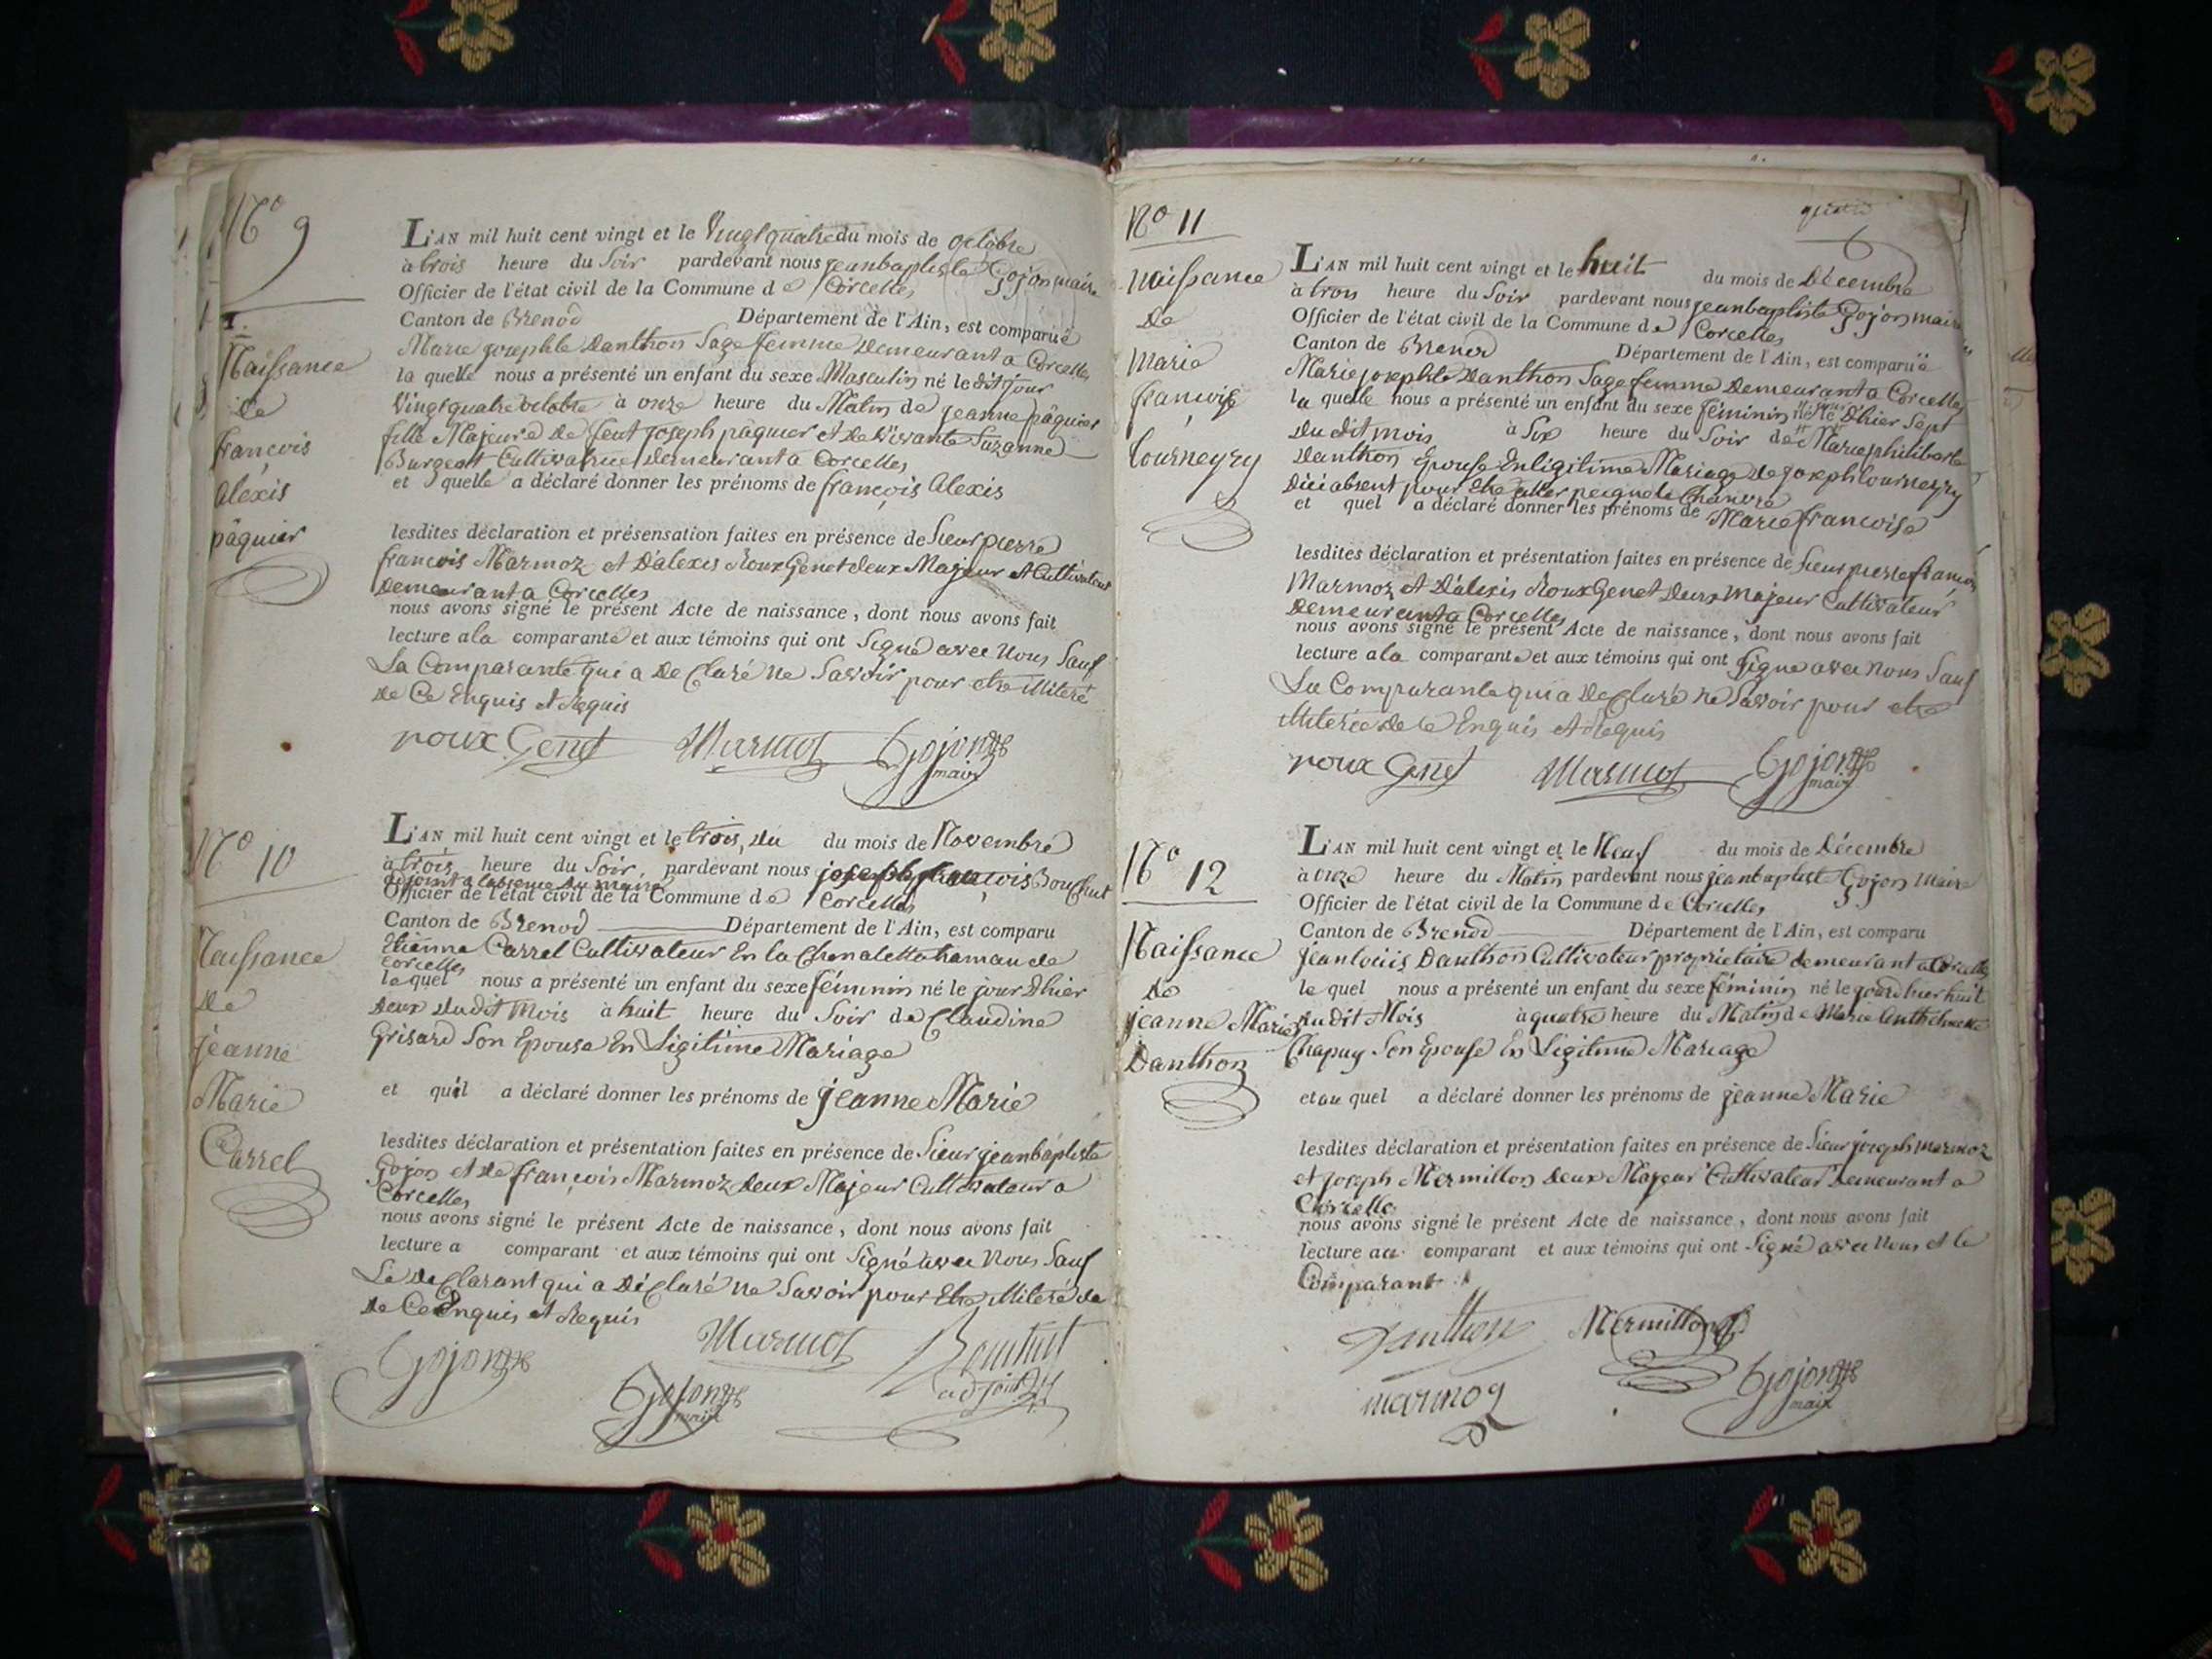 N.o 9
1.
Naissance
de
françois
alexis
pâquier
L'AN mil huit cent vingt et le Vingt quatre du mois de octobre
à trois heure du Soir pardevant nous jeanbaptiste Gojon maire
Officier de l'état civil de la Commune de Corcelles
Canton de Brenod Département de l'Ain, est comparue
Marie josephte Danthon Sage femme Demeurant a Corcelles
la quelle nous a présenté un enfant du sexe Masculin né le dit jour
Vingt quatre octobre à onze heure du Matin de jeanne pâquier
fille Majeure de feut joseph pâquier et de Vivante Suzanne
Burgeat Cultivatrice Demeurant a Corcelles
et quelle a déclaré donner les prénoms de françois alexis
lesdites déclaration et présensation faites en présence de Sieur pierre
françois Marmoz et D'alexis Roux Genet deux Majeur et Cultivateur
Demeurant a Corcelles
nous avons signé le présent Acte de naissance, dont nous avons fait
lecture a la comparante et aux témoins qui ont Signé avec Nous Sauf
La Comparante qui a Declaré ne Savoir pour etre illiteré
de Ce Enquis et Requis
roux Genet Marmoz Gojon
maire
N.o 10
Naissance
de
jeanne
Marie
Carrel
L'AN mil huit cent vingt et le trois, du du mois de Novembre
à trois heure du Soir, pardevant nous joseph françois Bouchut
adjoint a labsence du maire
Officier de l'état civil de la Commune de Corcelles
Canton de Brenod Département de l'Ain, est comparu
Etienne Carrel Cultivateur En la Chenalette hamau de
corcelles
lequel nous a présenté un enfant du sexe féminin né le jour Dhier
deux dudit Mois à huit heure du Soir de Claudine
Grisard Son Epouse En Ligitime Mariage
et quil a déclaré donner les prénoms de jeanne Marie
lesdites déclaration et présentation faites en présence de Sieur jeanbaptiste
Gojon et de françois Marmoz deux Majeur Cultivateur a
Corcelles
nous avons signé le présent Acte de naissance, dont nous avons fait
lecture a comparant et aux témoins qui ont Signé avec Nous Sauf
Le declarant qui a Déclaré ne Savoir pour Etre illiteré de
de Ce Enquis et Requis
Gojon Marmoz Bouchut
Gojon adjoint
maire
N.o 11
Naissance
de
Marie
françoise
tourneyry
L'AN mil huit cent vingt et le huit du mois de Décembre
à trois heure du Soir pardevant nous jeanbaptiste Gojon maire
Officier de l'état civil de la Commune de Corcelles
Canton de Brenod Département de l'Ain, est comparuë
Marie josephte Danthon Sage femme Demeurant a Corcelles
la quelle nous a présenté un enfant du sexe féminin né le D'hier Sept
du dit mois à Six heure du Soir de Marie philiberte
Danthon Epouse En ligitime Mariage de joseph tourneyry
Dici absent pour etre aller peigne le Chanvre
et quel a déclaré donner les prénoms de Marie francoise
lesdites déclaration et présentation faites en présence de Sieur pierre françois
Marmoz et D'alexis Roux Genet deux majeur Cultivateur
Demeurant a Corcelles
nous avons signé le présent Acte de naissance, dont nous avons fait
lecture a la comparante et aux témoins qui ont Signe avec Nous Sauf
La Comparante qui a Declaré ne Savoir pour etre
illiterée de Ce Enquis et Requis
roux Genet Marmoz Gojon
maire
N.o 12
Naissance
de
jeanne Marie
Danthon
L'AN mil huit cent vingt et le Neuf du mois de Décembre
à onze heure du Matin pardevant nous jeanbaptiste Gojon Maire
Officier de l'état civil de la Commune de Corcelles
Canton de Brenod Département de l'Ain, est comparu
jean louis Danthon Cultivateur propriétaire demeurant a Corcelles
le quel nous a présenté un enfant du sexe féminin né le jourdhier huit
du dit Mois à quatre heure du Matin de Marie Anthelmette
Chapuy Son Epouse En Ligitime Mariage
et au quel a déclaré donner les prénoms de jeanne Marie
lesdites déclaration et présentation faites en présence de Sieur joseph marmoz
et joseph Mermillon deux Majeur Cultivateur Demeurant a
Corcelles
nous avons signé le présent Acte de naissance, dont nous avons fait
lecture au comparant et aux témoins qui ont Signé avec Nous et le
Comparant
Danthon Mermillon
marmoz Gojon
maire